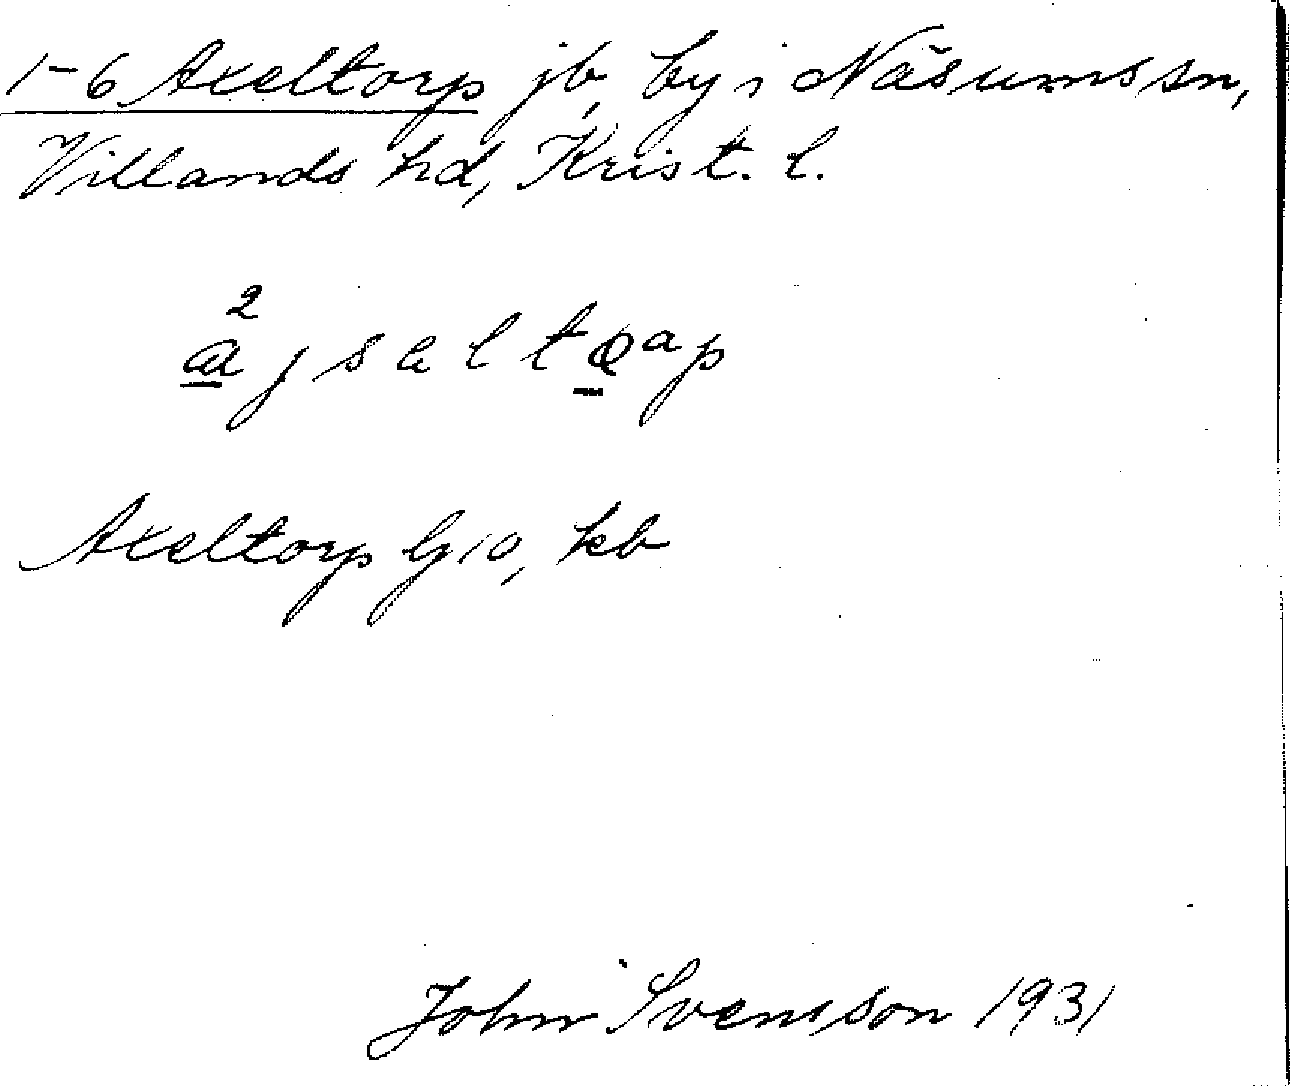 1-6 Axeltorp jb, by i Näsums sn,
Villands hd, Krist. l.
Axeltorp G10, kb
John Svensson 1931